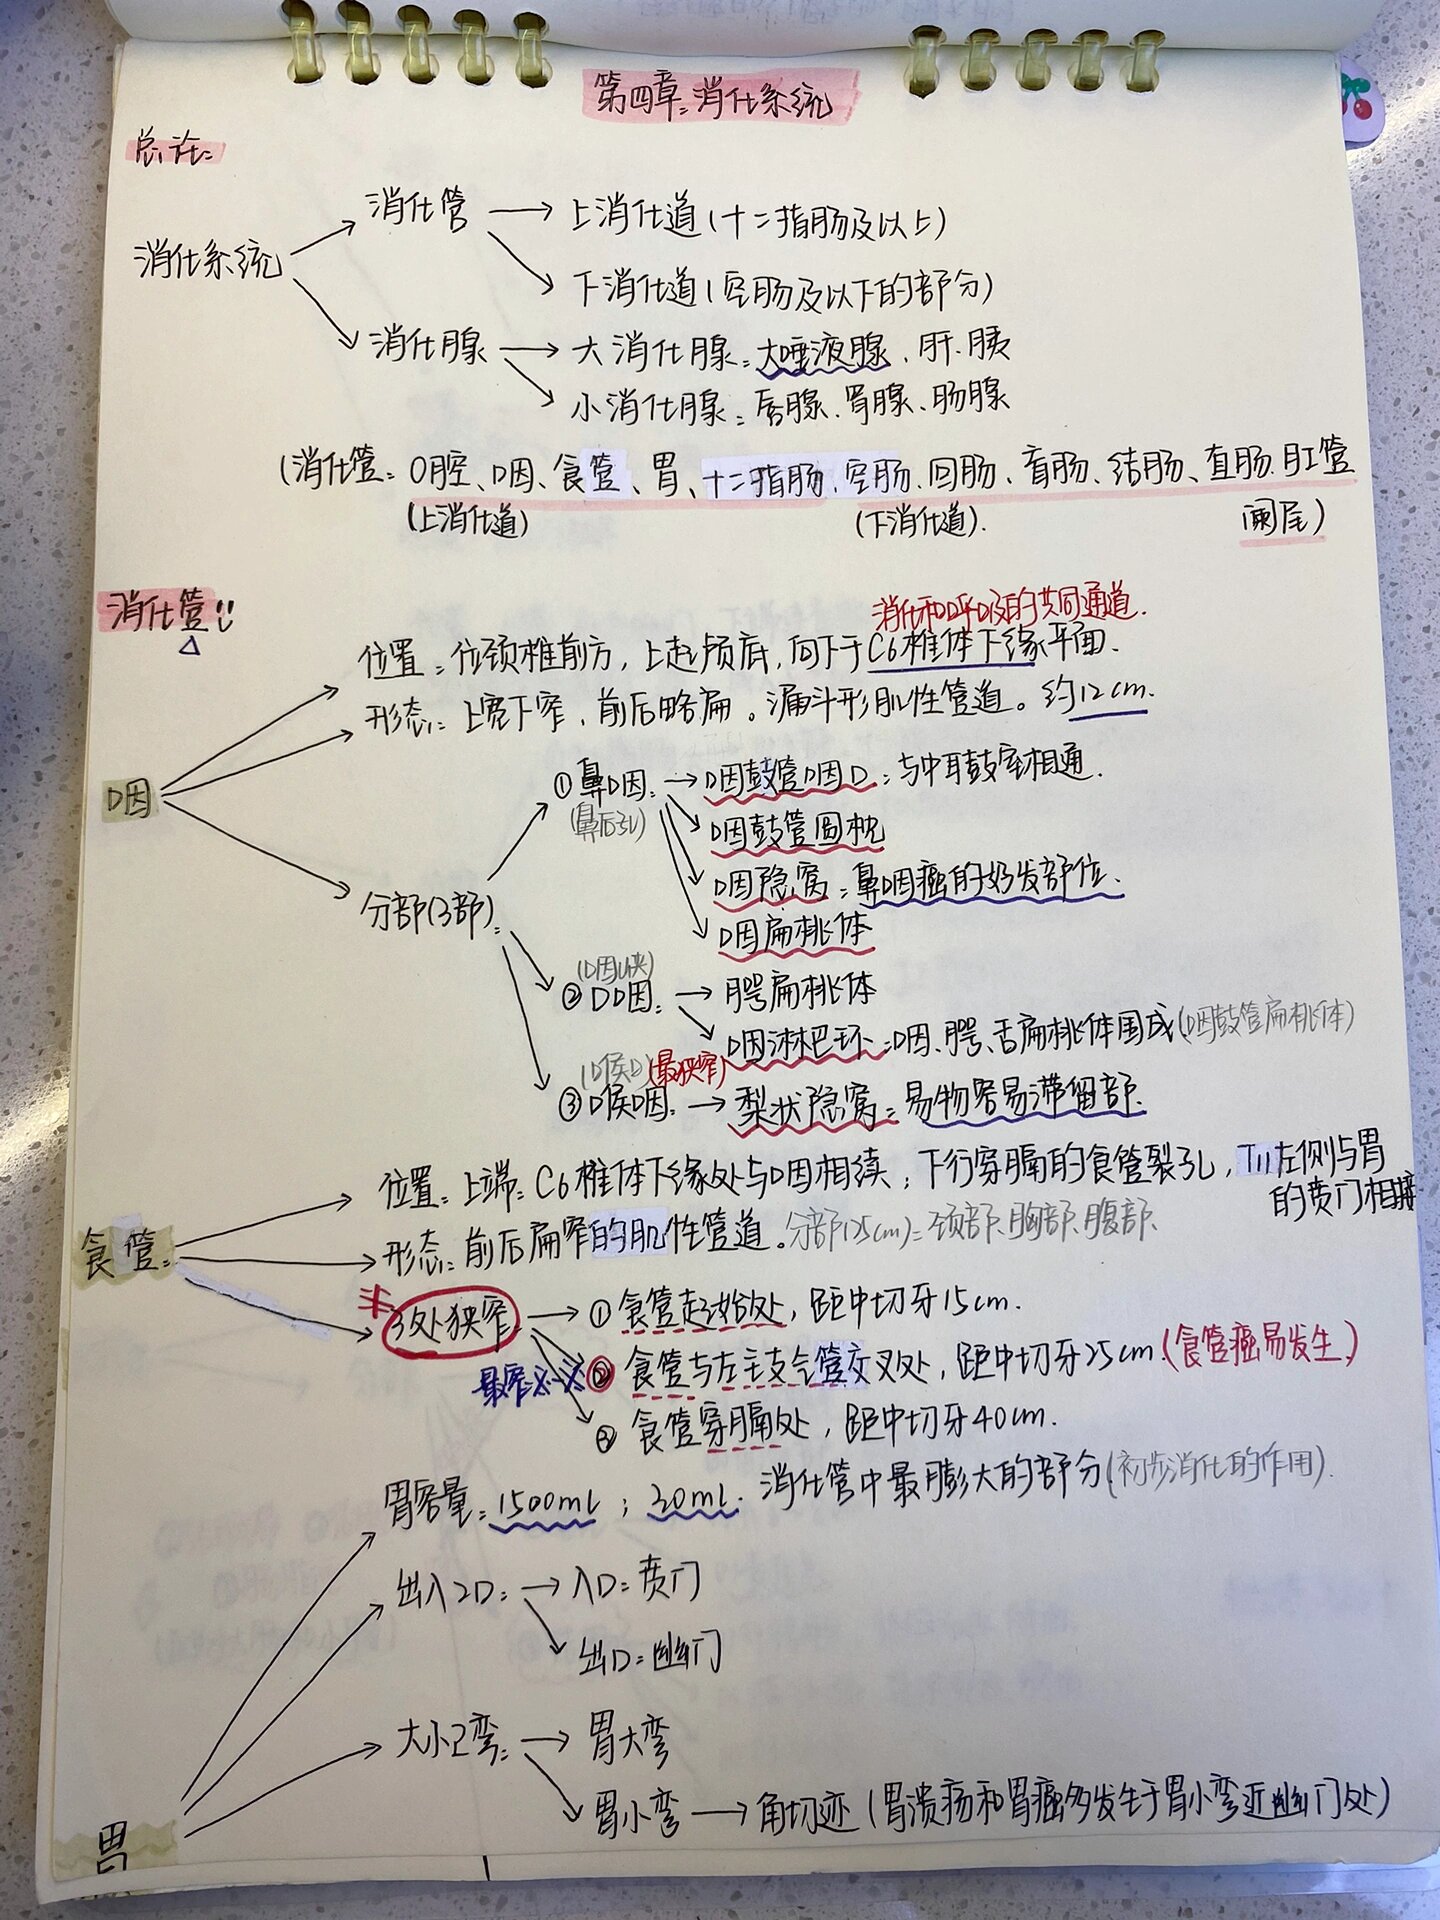 第四章：消化系统
总论：
消化系统
消化管 → 上消化道（十二指肠及以上）
下消化道（空肠及以下的部分）
消化腺 → 大消化腺：大唾液腺、肝、胰
小消化腺：唇腺、胃腺、肠腺
（消化管：口腔、咽、食管、胃、十二指肠、空肠、回肠、盲肠、结肠、直肠、肛管
（上消化道） （下消化道）. 阑尾）
消化管!!
消化和呼吸的共同通道.
咽
位置：位颈椎前方，上起颅底，向下于C6椎体下缘平面.
形态：上宽下窄，前后略扁。漏斗形肌性管道。约12cm.
分部（3部）：
①鼻咽：→ 咽鼓管咽口：与中耳鼓室相通.
（鼻后孔）
咽鼓管圆枕
咽隐窝：鼻咽癌的好发部位.
咽扁桃体
（咽峡）
②口咽：→ 腭扁桃体
咽淋巴环：咽、腭、舌扁桃体围成（咽鼓管扁桃体）
（喉口）（最狭窄）
③喉咽：→ 梨状隐窝：易物容易滞留部.
食管：
位置：上端：C6椎体下缘处与咽相续；下行穿膈的食管裂孔，T11左侧与胃
的贲门相接
形态：前后扁窄的肌性管道。分部（25cm）：颈部、胸部、腹部.
3处狭窄 → ①食管起始处，距中切牙15cm.
最窄 ②食管与左主支气管交叉处，距中切牙25cm.（食管癌易发生）
③食管穿膈处，距中切牙40cm.
胃
胃容量：1500ml；30ml. 消化管中最膨大的部分（初步消化的作用）.
出入2口：→ 入口：贲门
出口：幽门
大小2弯：→ 胃大弯
胃小弯 → 角切迹（胃溃疡和胃癌多发生于胃小弯近幽门处）